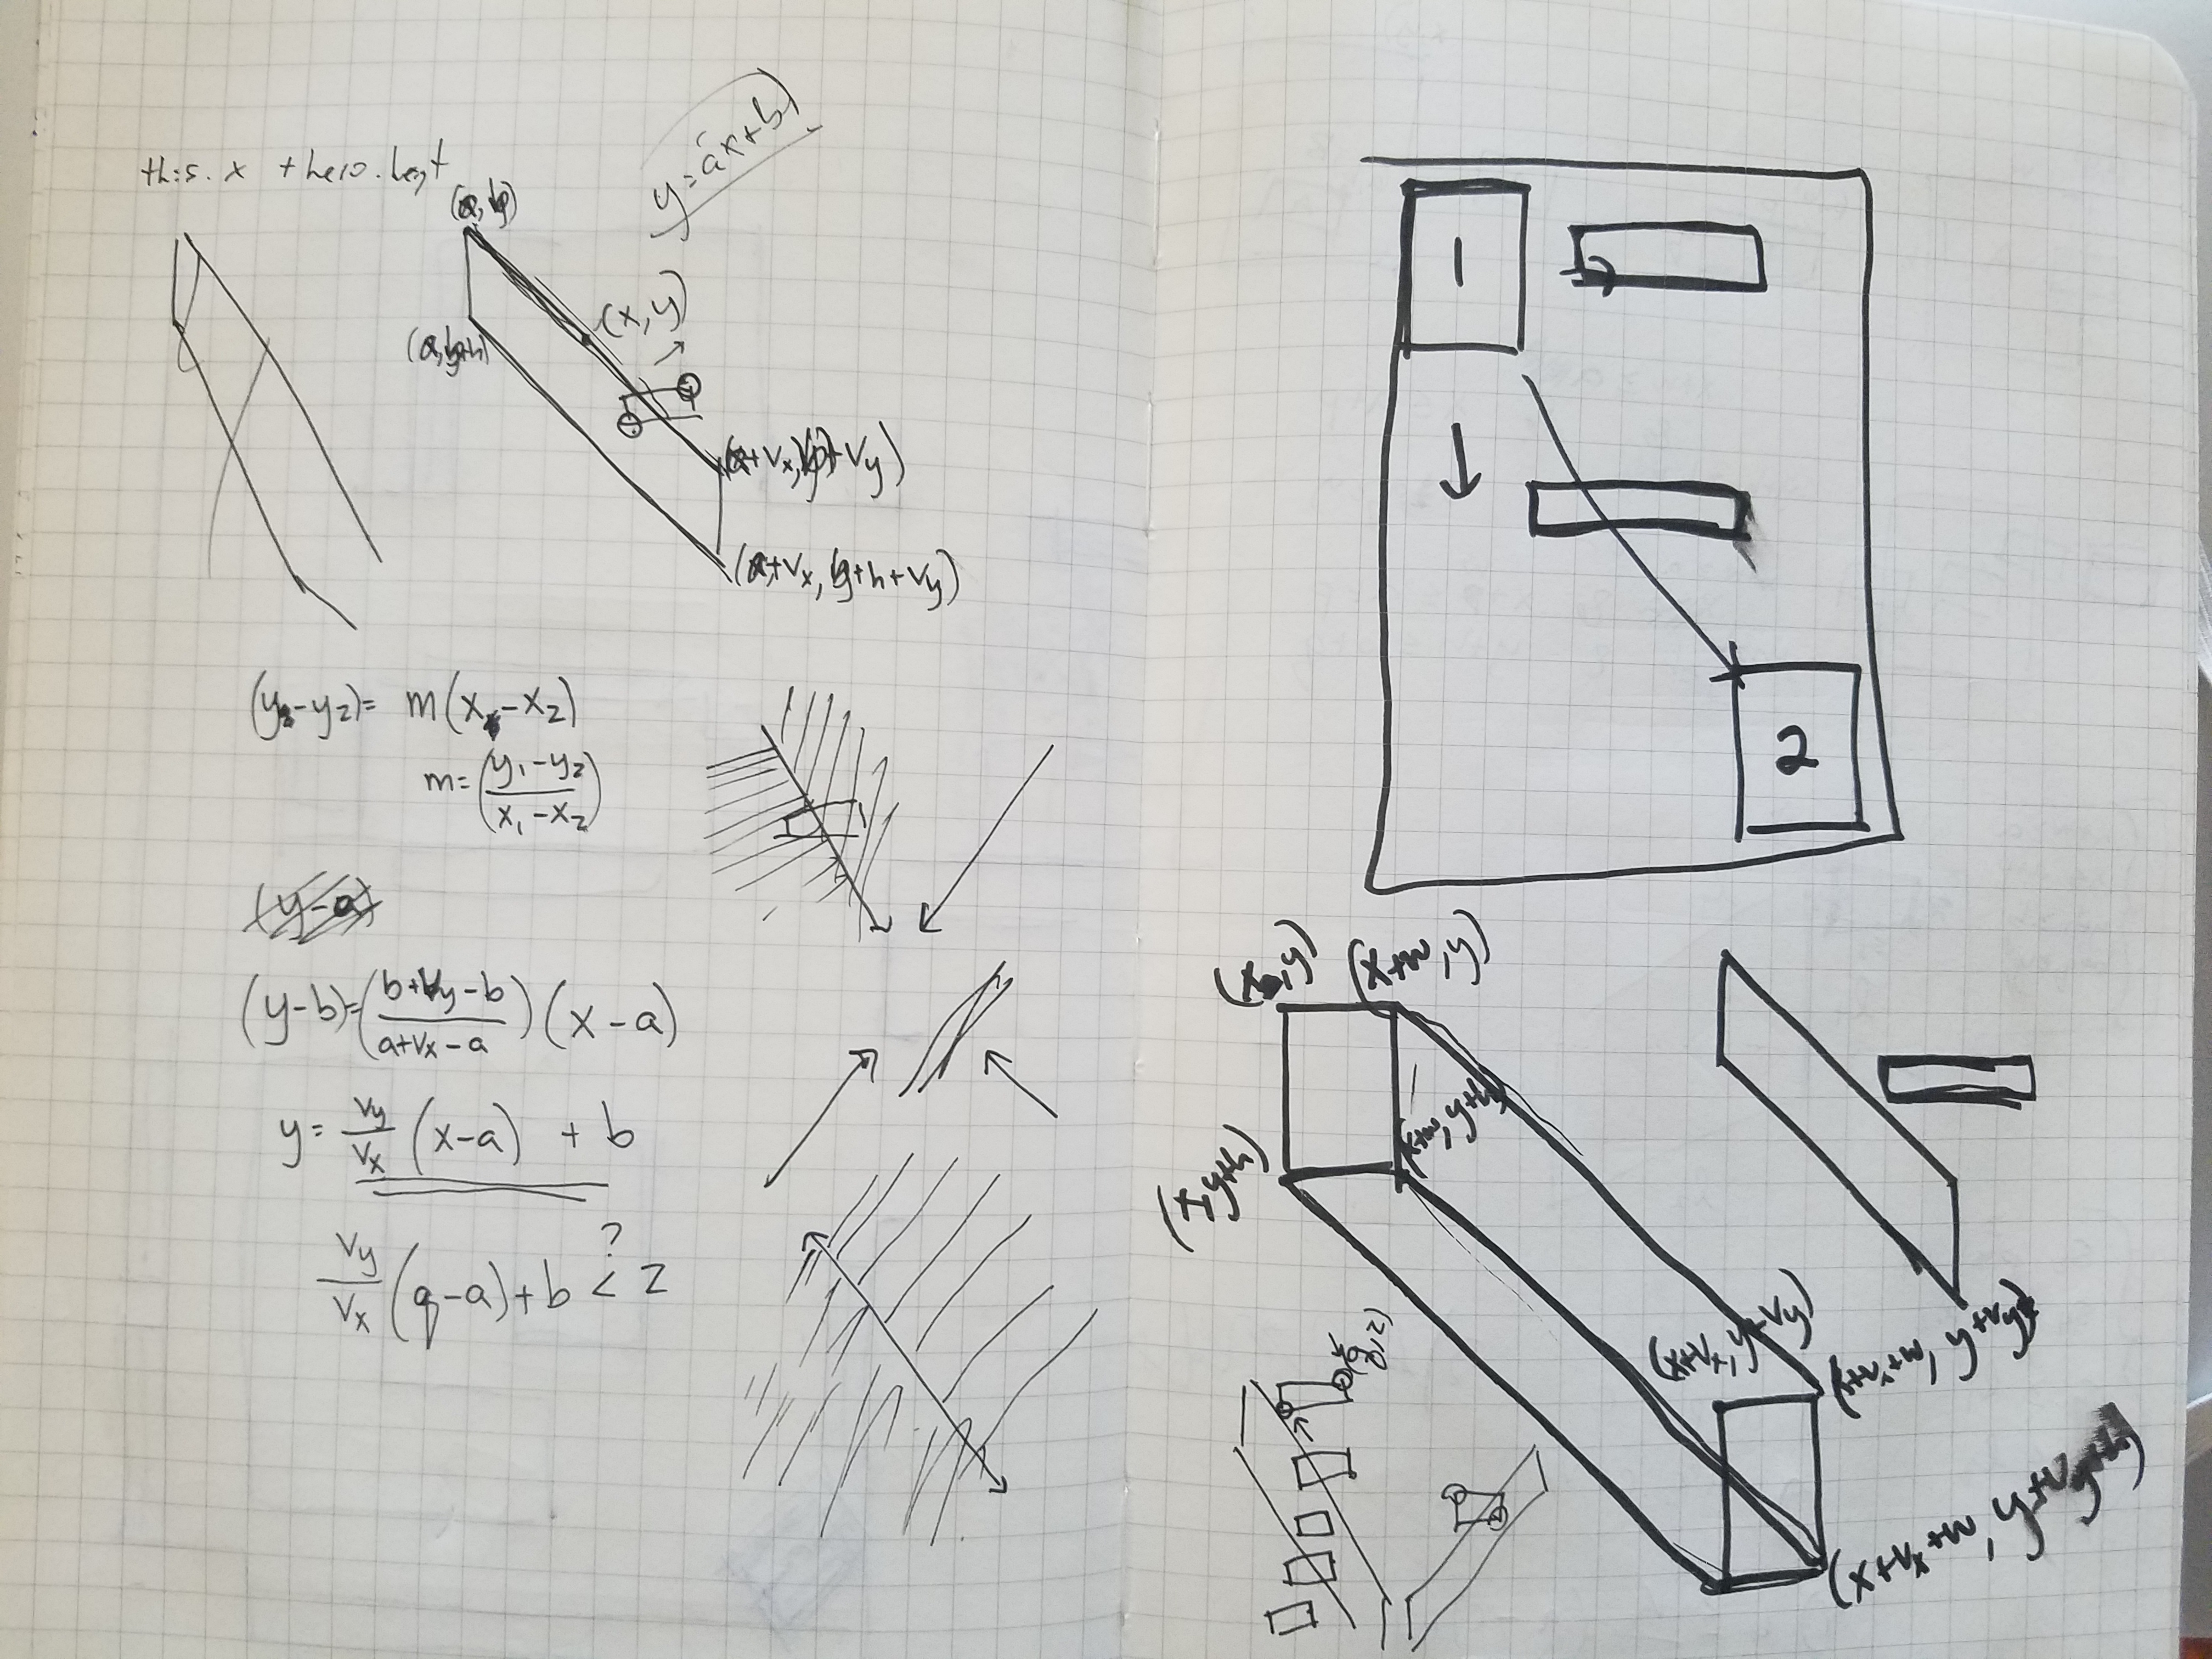 this.x + hero.
y=ax+b
(a, b)
(x, y)
(a, b+h)
(a+Vx, b+Vy)
(a+Vx, b+h+Vy)
(y-y2)= m(x-x2)
m=(y1-y2/x1-x2)
(y-a)
(y-b)=(b+Vy-b/a+Vx-a)(x-a)
y= Vy/Vx (x-a) + b
Vy/Vx (q-a)+b <? z
1
2
(x, y)
(x+w, y)
(x+w, y+h)
(x, y+h)
(x+Vx, y+Vy)
(x+Vx+w, y+Vy)
(x+Vx+w, y+Vy+h)
(q, z)